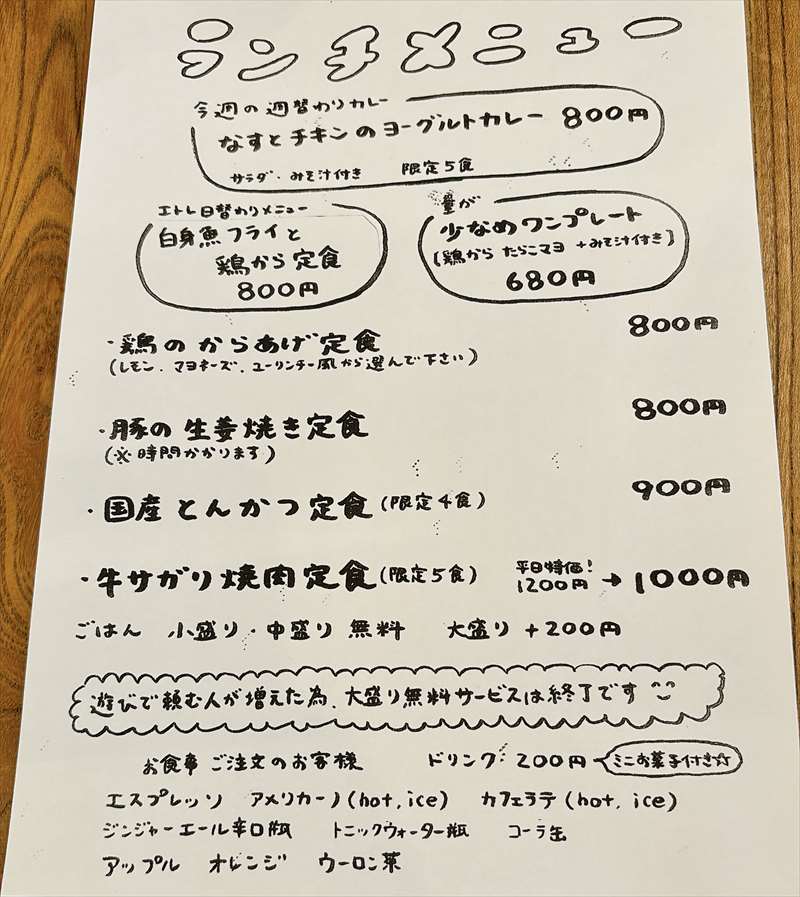 ランチメニュー
今週の週替わりカレー
なすとチキンのヨーグルトカレー 800円
サラダ・みそ汁付き 限定5食
エトレ日替わりメニュー
白身魚フライと
鶏から定食
800円
量が
少なめワンプレート
[鶏から たらこマヨ +みそ汁付き]
680円
・鶏のからあげ定食 800円
(レモン、マヨネーズ、ユーリンチー風から選んで下さい)
・豚の生姜焼き定食 800円
(※時間かかります)
・国産とんかつ定食(限定4食) 900円
・牛サガリ焼肉定食(限定5食) 平日特価! 1200円→1000円
ごはん 小盛り・中盛り 無料 大盛り+200円
遊びで頼む人が増えた為、大盛り無料サービスは終了です
お食事ご注文のお客様 ドリンク 200円 ミニお菓子付き☆
エスプレッソ アメリカーノ(hot, ice) カフェラテ(hot, ice)
ジンジャーエール辛口瓶 トニックウォーター瓶 コーラ缶
アップル オレンジ ウーロン茶